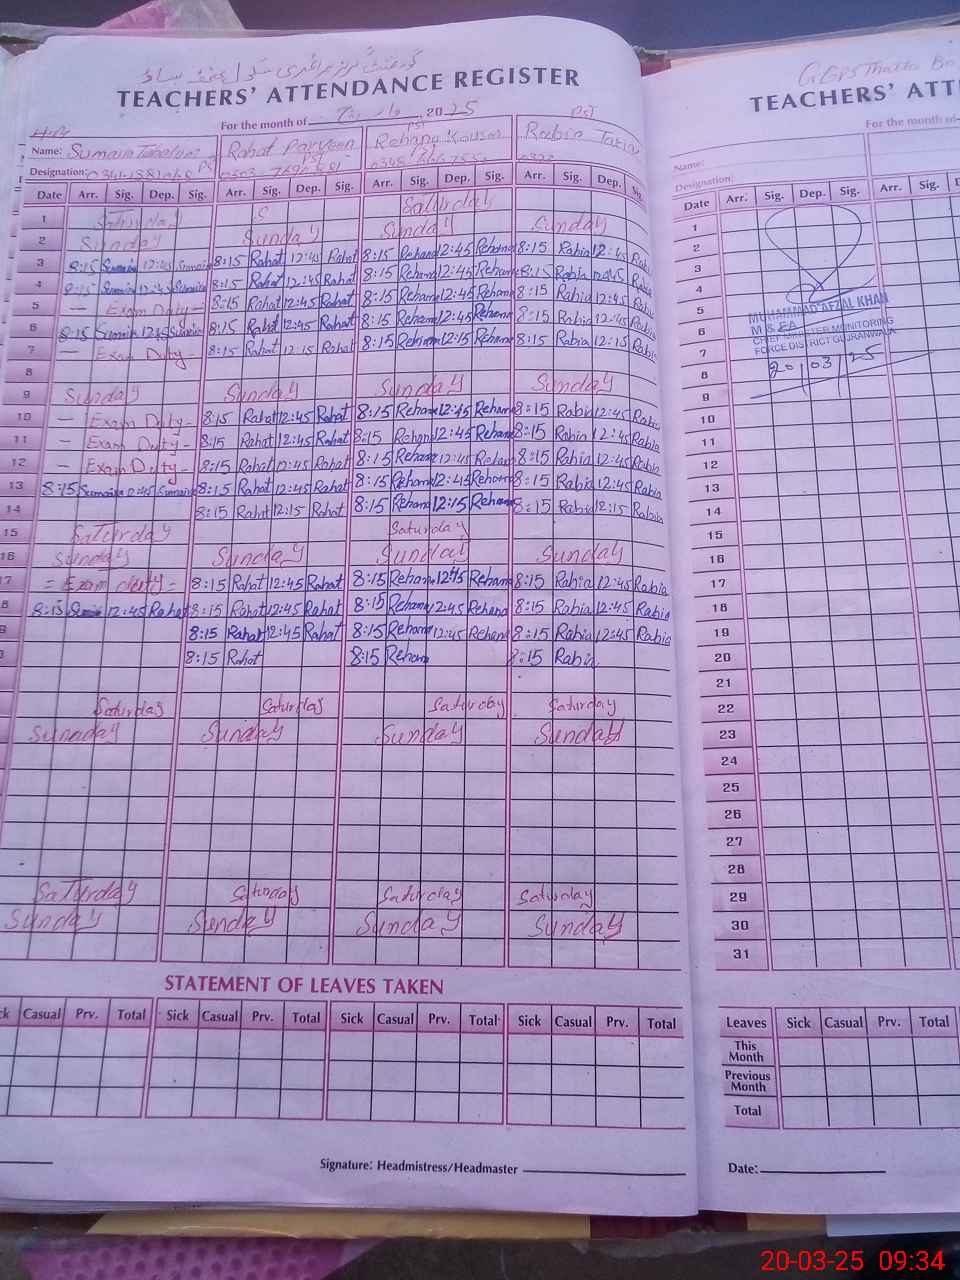 TEACHERS' ATTENDANCE REGISTER
For the month of 2025
Name: Sumaira Rahat Parveen PST Rehana Kousar PST Rabia PST
Designation: PST
Date Arr. Sig. Dep. Sig. Arr. Sig. Dep. Sig. Arr. Sig. Dep. Sig. Arr. Sig. Dep. Sig.
1 Saturday Saturday
2 Sunday Sunday Sunday Sunday
3 8:15 Sumaira 12:45 Sumaira 8:15 Rahat 12:45 Rahat 8:15 Rehana 12:45 Rehana 8:15 Rabia 12:45 Rabia
4 8:15 Sumaira 12:45 Sumaira 8:15 Rahat 12:45 Rahat 8:15 Rehana 12:45 Rehana 8:15 Rabia 12:45 Rabia
5 — Exam Duty - 8:15 Rahat 12:45 Rahat 8:15 Rehana 12:45 Rehana 8:15 Rabia 12:45 Rabia
6 8:15 Sumaira 12:45 Sumaira 8:15 Rahat 12:45 Rahat 8:15 Rehana 12:45 Rehana 8:15 Rabia 12:45 Rabia
7 — Exam Duty - 8:15 Rahat 12:15 Rahat 8:15 Rehana 12:15 Rehana 8:15 Rabia 12:15 Rabia
8
9 Sunday Sunday Sunday Sunday
10 — Exam Duty - 8:15 Rahat 12:45 Rahat 8:15 Rehana 12:45 Rehana 8:15 Rabia 12:45 Rabia
11 — Exam Duty - 8:15 Rahat 12:45 Rahat 8:15 Rehana 12:45 Rehana 8:15 Rabia 12:45 Rabia
12 — Exam Duty - 8:15 Rahat 12:45 Rahat 8:15 Rehana 12:45 Rehana 8:15 Rabia 12:45 Rabia
13 8:15 Sumaira 12:45 Sumaira 8:15 Rahat 12:45 Rahat 8:15 Rehana 12:45 Rehana 8:15 Rabia 12:45 Rabia
14 8:15 Rahat 12:15 Rahat 8:15 Rehana 12:15 Rehana 8:15 Rabia 12:15 Rabia
15 Saturday Saturday
16 Sunday Sunday Sunday Sunday
17 = Exam duty = 8:15 Rahat 12:45 Rahat 8:15 Rehana 12:45 Rehana 8:15 Rabia 12:45 Rabia
8 8:15 12:45 Rahat 8:15 Rahat 12:45 Rahat 8:15 Rehana 12:45 Rehana 8:15 Rabia 12:45 Rabia
8:15 Rahat 12:45 Rahat 8:15 Rehana 12:45 Rehana 8:15 Rabia 12:45 Rabia
8:15 Rahat 8:15 Rehana 8:15 Rabia
Saturday Saturday Saturday Saturday
Sunday Sunday Sunday Sunday
Saturday Saturday Saturday Saturday
Sunday Sunday Sunday Sunday
STATEMENT OF LEAVES TAKEN
Casual Prv. Total Sick Casual Prv. Total Sick Casual Prv. Total Sick Casual Prv. Total
Signature: Headmistress/Headmaster
GGPS Thatta
TEACHERS' ATT
For the month of
Name:
Designation:
Date Arr. Sig. Dep. Sig. Arr. Sig.
1
2
3
4
5
6
7
8
9
10
11
12
13
14
15
16
17
18
19
20
21
22
23
24
25
26
27
28
29
30
31
MUHAMMAD AFZAL KHAN
M & EA
CHIEF MINISTER MONITORING
FORCE DISTRICT GUJRANWALA
20/03/25
Leaves Sick Casual Prv. Total Sick
This Month
Previous Month
Total
Date:
20-03-25 09:34